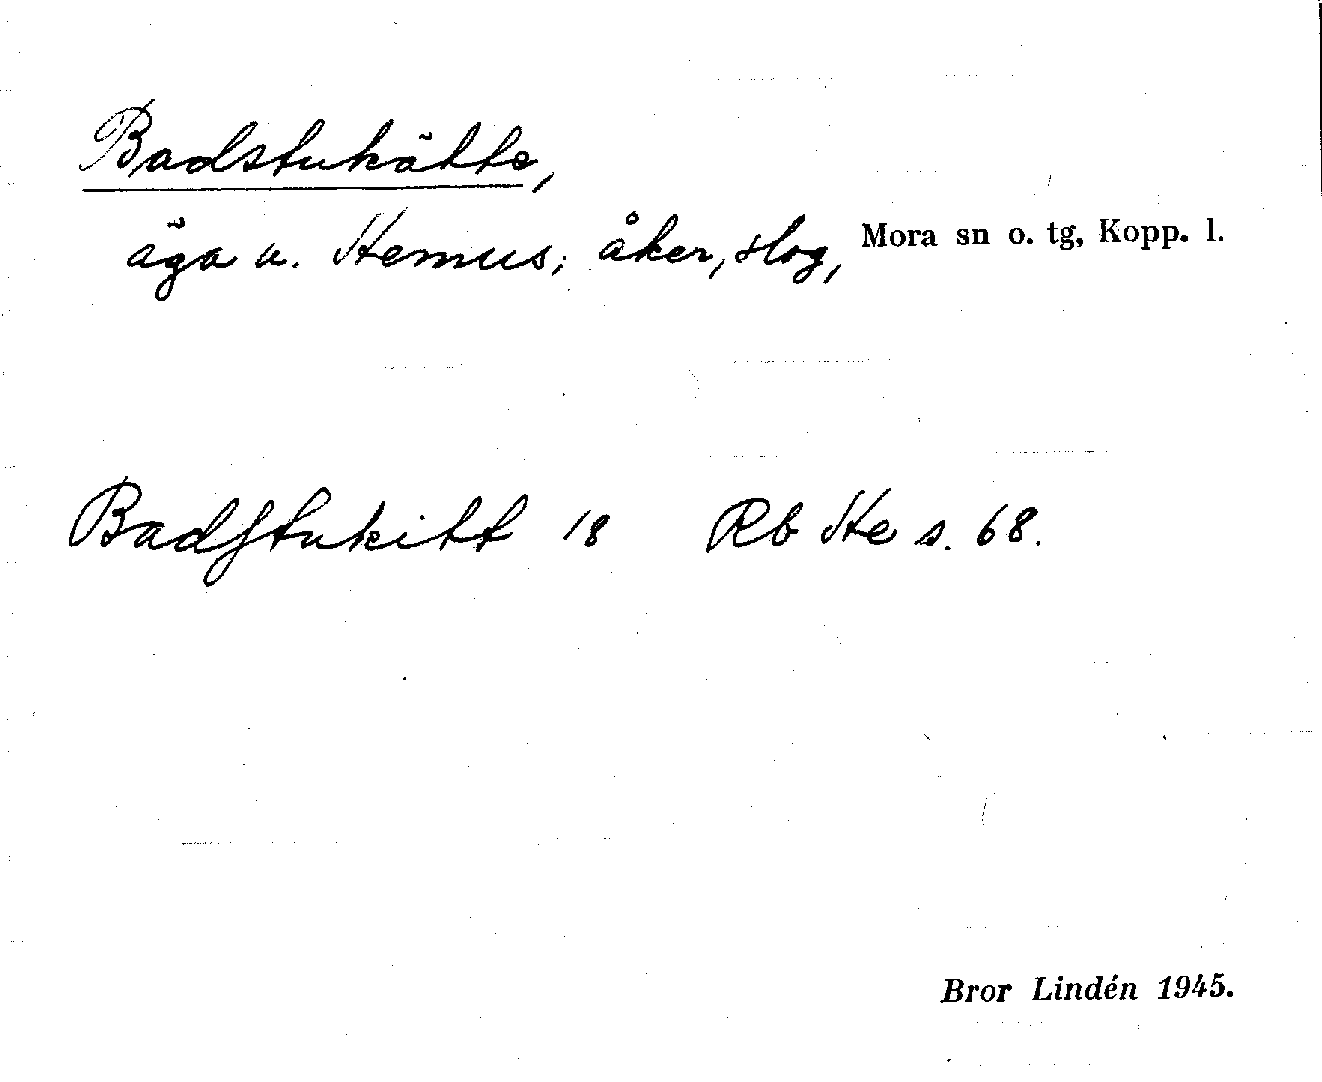 Badstukätte,
äga u. Hemus; åker, slog, Mora sn o. tg, Kopp. l.
Badſtukitt 18 Rb He s. 68.
Bror Lindén 1945.